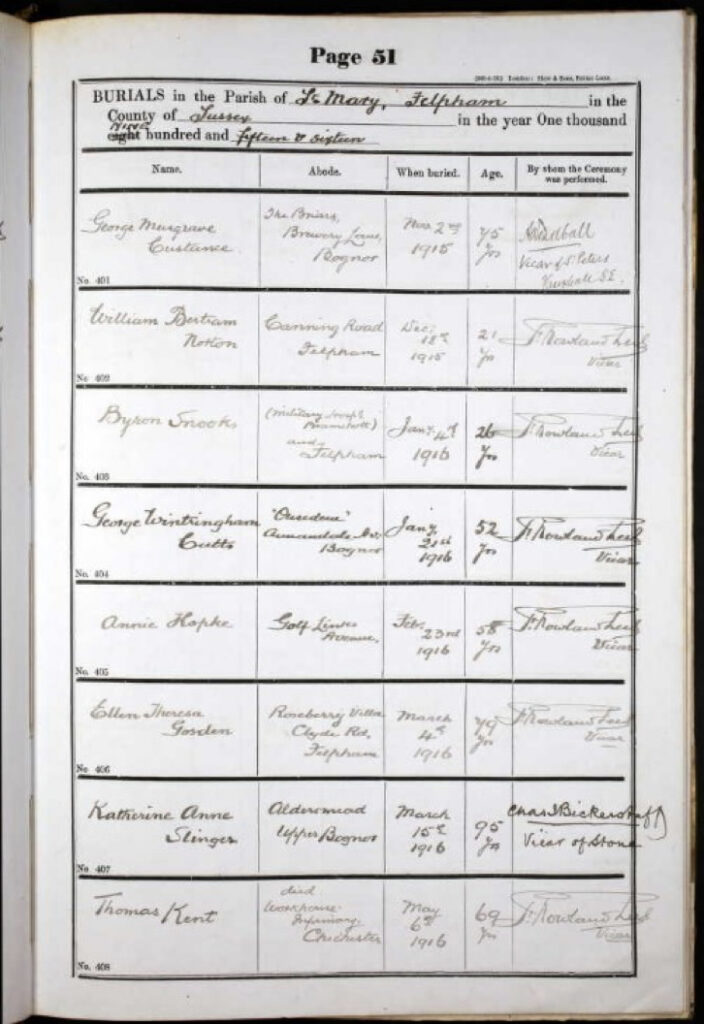 Page 51
BURIALS in the Parish of St Mary, Felpham in the
County of Sussex in the year One thousand
nine
eight hundred and fifteen & sixteen
Name. Abode. When buried. Age. By whom the Ceremony was performed.
George Musgrave
Custance
The Briars,
Brewery Lane,
Bognor
Nov 2nd
1915
75
Yrs
Vicar of St Peters
Vauxhall S.E.
No. 401
William Bertram
Norton
Canning Road
Felpham
Dec.
18th
1915
21
Yrs
F. Rowland
Vicar
No 402
Byron Snooks
(Military
and
Felpham
Jany. 4th
1916
26
Yrs
F. Rowland
Vicar
No. 403
George Wintringham
Cutts
Annandale Av.
Bognor
Jany
21st
1916
52
Yrs
F. Rowland
Vicar
No. 404
Annie Hopke
Golf Links
Avenue,
Feb.
23rd
1916
58
Yrs
F. Rowland
Vicar
No. 405
Ellen Theresa
Gosden
Roseberry Villa
Clyde Rd,
Felpham
March
4th
1916
79
Yrs
F. Rowland
Vicar
No 406
Katherine Anne
Slinger
Upper Bognor
March
15th
1916
95
Yrs
Chas J Bickersteth
Vicar of Stone
No. 407
Thomas Kent
died
Workhouse
Infirmary,
Chichester
May
6th
1916
69
Yrs
F. Rowland
Vicar
No. 408